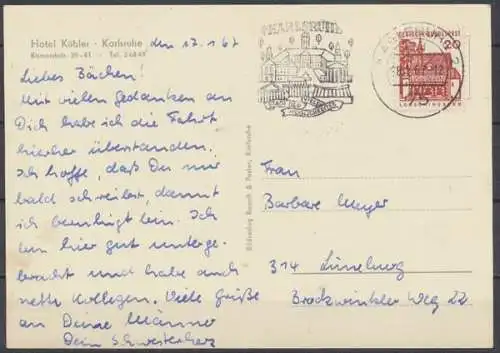 Hotel Kübler · Karlsruhe
Bismarckstr. 39-41 · Tel. 26849
den 17.1.67
Liebes Bächen!
Mit vielen Gedanken an
Dich habe ich die Fahrt
hierher überstanden.
Ich hoffe, daß Du mir
bald schreibst, damit
ich beruhigt bin. Ich
bin hier gut unterge-
bracht und habe auch
nette Kollegen. Viele Grüße
an Deine Männer
Dein Schwesterherz
KARLSRUHE
DEUTSCHE BUNDESPOST
Frau
Barbara Meyer
314 Lüneburg
Brockwinkler Weg 22
Karlsruhe